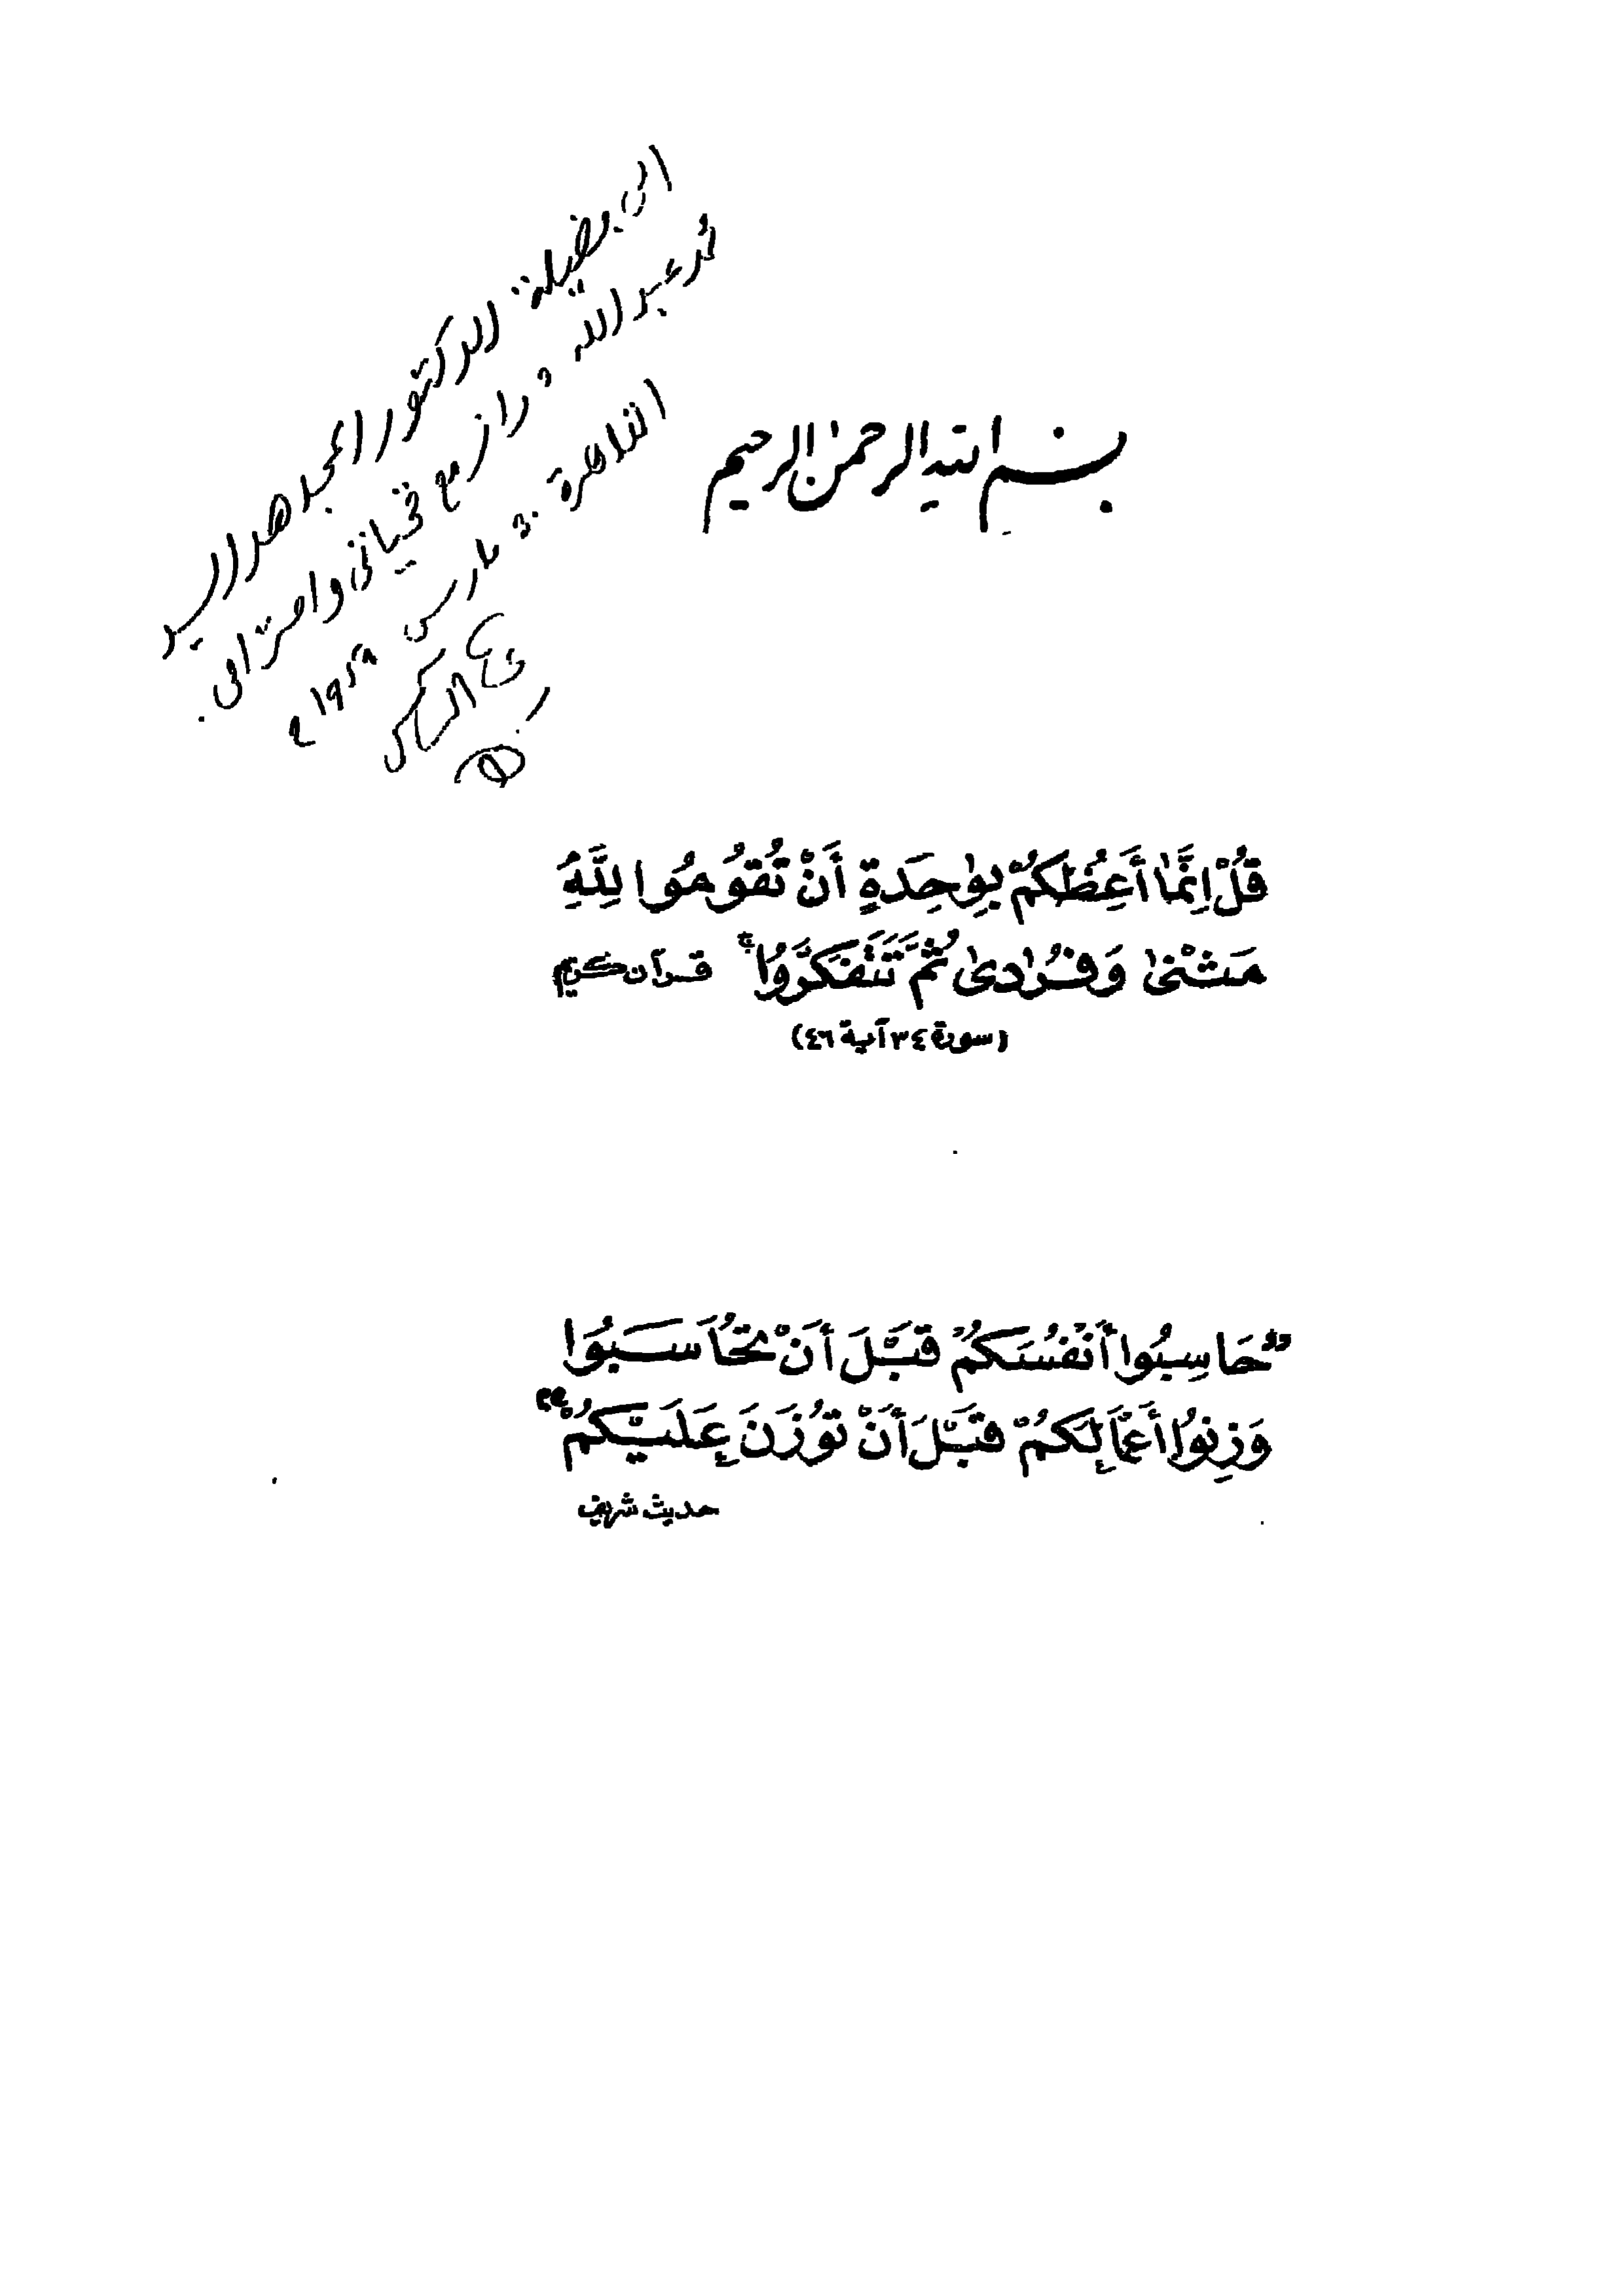 الى فضيلة الدكتور المجاهد السيد
محمد عبد الله دراز مع تحياتي واحترامي.
القاهرة مارس م
بسم الله الرحمن الرحيم
قُلْ اِنَّمَا أَعِظُكُمْ بِوٰحِدَةٍ أَنْ تَقُومُوا لِلَّهِ
مَثْنىٰ وَفُرٰادىٰ ثُمَّ تَتَفَكَّرُوا ۚ قرآن كريم
(سورة ٣٤ آية ٤٦)
"حَاسِبُوا أَنْفُسَكُمْ قَبْلَ أَنْ تُحَاسَبُوا
وَزِنُوا أَعْمَالِكُمْ قَبْلَ أَنْ تُوْزَنَ عَلَيْكُمْ"
حديث شريف